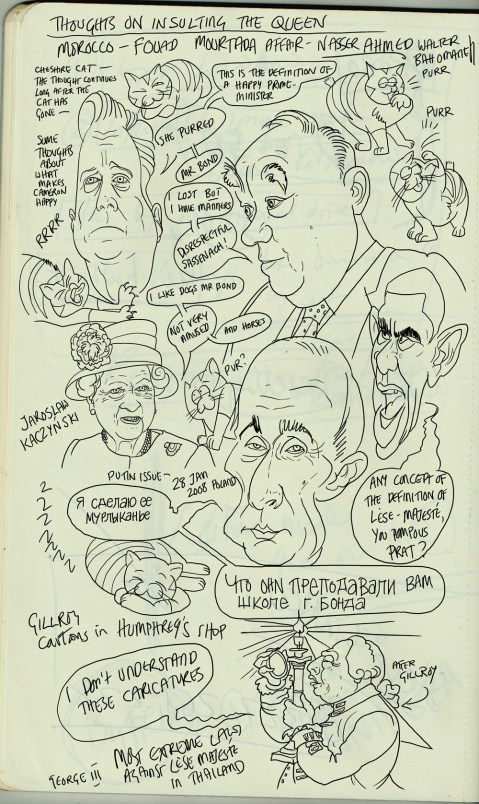 THOUGHTS ON INSULTING THE QUEEN
MOROCCO - FOUAD MOURTADA AFFAIR - NASSER AHMED WALTER
BAHOMANE
CHESHIRE CAT -
THE THOUGHT CONTINUES
LONG AFTER THE
CAT HAS
GONE -
THIS IS THE DEFINITION OF
A HAPPY PRIME-
MINISTER
PURR
PURR
SOME
THOUGHTS
ABOUT
WHAT
MAKES
CAMERON
HAPPY
RRRR
SHE PURRED
MR BOND
I LOST BUT
I HAVE MANNERS
DISRESPECTFUL
SASSENACH!
I LIKE DOGS MR BOND
NOT VERY
AMUSED
AND HORSES
PUR?
JAROSLAW
KACZYNSKI
PUTIN ISSUE -
28 JAN
2008 POLAND
2
2
2
Я СДЕЛАЮ ЕЕ
МУРЛЫКАНЬЕ
ANY CONCEPT OF
THE DEFINITION OF
LÈSE-MAJESTÉ,
YOU POMPOUS
PRAT?
ЧТО ОНИ ПРЕПОДАВАЛИ ВАМ
ШКОЛЕ Г. БОНДА
GILLROY
CARTOONS IN HUMPHREY'S SHOP
I DON'T UNDERSTAND
THESE CARICATURES
AFTER
GILLROY
MOST EXTREME LAWS
AGAINST LÈSE MAJESTE
IN THAILAND
GEORGE III